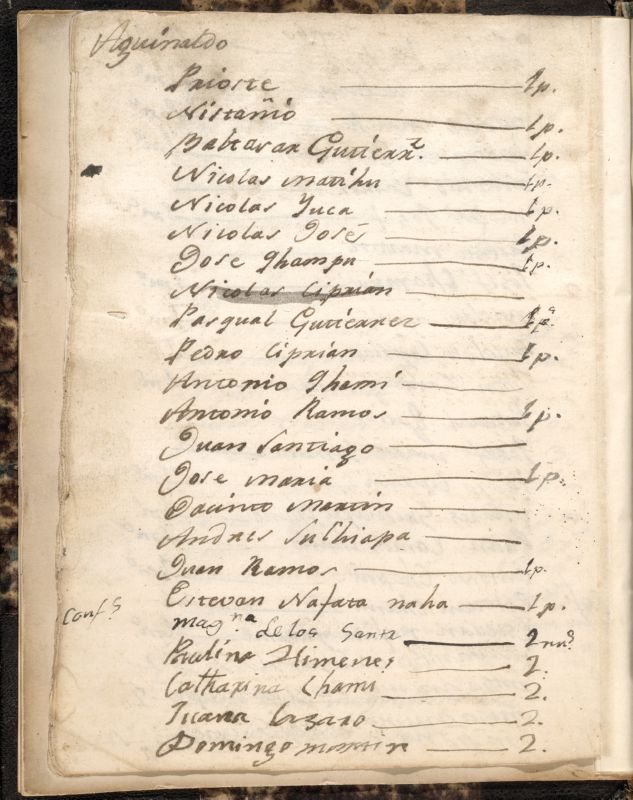 Aguinaldo
Prioste 1p.
Nistamió 1p.
Baltasar Gutierrz. 1p.
Nicolas mattihu 1p.
Nicolas Yuca 1p.
Nicolas José 1p.
Jose Ghampu 1p.
Nicolas Ciprian
Pasqual Gutierrez 1p.
Pedro Ciprian 1p.
Antonio Ghami
Antonio Ramos 1p.
Juan Santiago
Jose maria 1p.
Jacinto Martin
Andres Sulhiapa
Juan Ramos 1p.
Estevan Nafata naha 1p.
Conf.s
magna de los Santz 2
Paulina Ximenes 2.
Catharina Chami 2.
Juana Lazaro 2.
Domingo martin 2.